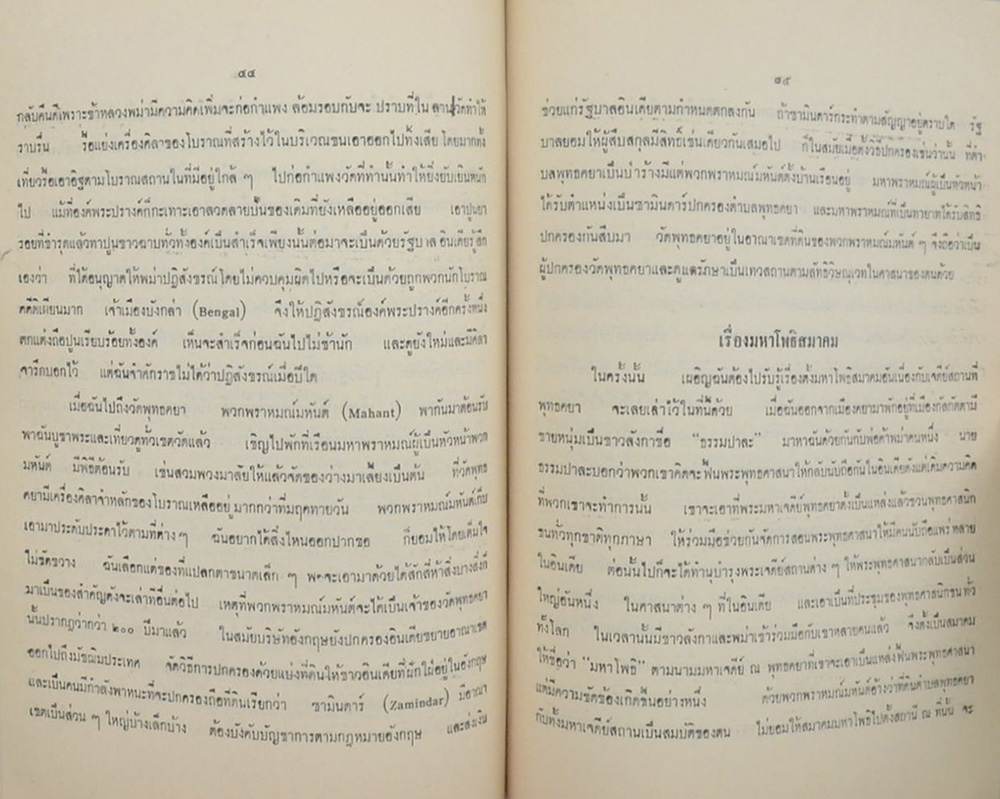 ๔๔
กลับคืนดีเพราะข้าหลวงพม่ามีความคิดเพิ่มจะก่อกำแพง ล้อมรอบกับจะ ปราบที่ใน ลานวัดทำให้
ราบรื่น รื้อแย่งเครื่องศิลาของโบราณที่สร้างไว้ในบริเวณขนเอาออกไปทิ้งเสีย โดยมากทั้ง
เที่ยวรื้อเอาอิฐตามโบราณสถานในที่มีอยู่ใกล้ ๆ ไปก่อกำแพงวัดที่ทำนั้นทำให้ยิ่งยับเยินหนัก
ไป แม้ที่องค์พระปรางค์ก็กะเทาะเอาลวดลายปั้นของเดิมที่ยังเหลืออยู่ออกเสีย เอาปูนยา
รอยที่ชำรุดแล้วทาปูนขาวฉาบทั่วทั้งองค์เป็นสำเร็จเพียงนั้นต่อมาจะเป็นด้วยรัฐบาลอินเดียรู้สึก
เองว่า ที่ได้อนุญาตให้พม่าปฏิสังขรณ์โดยไม่ควบคุมผิดไปหรือจะเป็นด้วยถูกพวกนักโบราณ
คดีติเตียนมาก เจ้าเมืองบังกล่า (Bengal) จึงให้ปฏิสังขรณ์องค์พระปรางค์อีกครั้งหนึ่ง
ตกแต่งถือปูนเรียบร้อยทั้งองค์ เห็นจะสำเร็จก่อนฉันไปไม่ช้านัก และดูยังใหม่และมีศิลา
จารึกบอกไว้ แต่ฉันจำศักราชไม่ได้ว่าปฏิสังขรณ์เมื่อปีใด
เมื่อฉันไปถึงวัดพุทธคยา พวกพราหมณ์มหันต์ (Mahant) พากันมาต้อนรับ
พาฉันบูชาพระและเที่ยวดูทั่วเขตวัดแล้ว เชิญไปพักที่เรือนมหาพราหมณ์ผู้เป็นหัวหน้าพวก
มหันต์ มีพิธีต้อนรับ เช่นสวมพวงมาลัยให้แล้วจัดของว่างมาเลี้ยงเป็นต้น ที่วัดพุทธ
คยามีเครื่องศิลาจำหลักของโบราณเหลืออยู่มากกว่าที่มฤคทายวัน พวกพราหมณ์มหันต์เก็บ
เอามาประดับประดาไว้ตามที่ต่าง ๆ ฉันอยากได้สิ่งไหนออกปากขอ ก็ยอมให้โดยเต็มใจ
ไม่ขัดขวาง ฉันเลือกแต่ของที่แปลกตาขนาดเล็ก ๆ พอจะเอามาด้วยได้สักสี่ห้าสิ่งบางสิ่งก็
มาเป็นของสำคัญดังจะเล่าที่อื่นต่อไป เหตุที่พวกพราหมณ์มหันต์จะได้เป็นเจ้าของวัดพุทธคยา
นั้นปรากฏว่ากว่า ๒๐๐ ปีมาแล้ว ในสมัยบริษัทอังกฤษยังปกครองอินเดียขยายอาณาเขต
ออกไปถึงมัชฌิมประเทศ จัดวิธีการปกครองด้วยแบ่งที่ดินให้ชาวอินเดียที่ฝักใฝ่อยู่ในอังกฤษ
และเป็นคนมีกำลังพาหนะที่จะปกครองถือที่ดินเรียกว่า ซามินดาร์ (Zamindar) มีอาณา
เขตเป็นส่วน ๆ ใหญ่บ้างเล็กบ้าง ต้องบังคับบัญชาการตามกฎหมายอังกฤษ และส่งเงิน
๔๕
ช่วยแก่รัฐบาลอินเดียตามกำหนดตกลงกัน ถ้าซามินดาร์กระทำตามสัญญาอยู่ตราบใด รัฐ
บาลยอมให้ผู้สืบสกุลมีสิทธิ์เช่นเดียวกันเสมอไป ก็ในสมัยเมื่อตั้งวิธีปกครองเช่นว่านั้น ที่ตำ
บลพุทธคยาเป็นป่าร้างมีแต่พวกพราหมณ์มหันต์ตั้งบ้านเรือนอยู่ มหาพราหมณ์ผู้เป็นหัวหน้า
ได้รับตำแหน่งเป็นซามินดาร์ปกครองตำบลพุทธคยา และมหาพราหมณ์ที่เป็นทายาทได้รับสิทธิ
ปกครองกันสืบมา วัดพุทธคยาอยู่ในอาณาเขตที่ดินของพวกพราหมณ์มหันต์ ๆ จึงถือว่าเป็น
ผู้ปกครองวัดพุทธคยาและดูแลรักษาเป็นเทวสถานตามลัทธิวิษณุเวทในศาสนาของตนด้วย
เรื่องมหาโพธิสมาคม
ในครั้งนั้น เผอิญฉันต้องไปรับรู้เรื่องตั้งมหาโพธิสมาคมอันเนื่องกับเจดีย์สถานที่
พุทธคยา จะเลยเล่าไว้ในที่นี้ด้วย เมื่อฉันออกจากเมืองคยามาพักอยู่ที่เมืองกัลกัตตามี
ชายหนุ่มเป็นชาวลังกาชื่อ "ธรรมปาละ" มาหาฉันด้วยกันกับพ่อค้าพม่าคนหนึ่ง นาย
ธรรมปาละบอกว่าพวกเขาคิดจะฟื้นพระพุทธศาสนาให้กลับนับถือกันในอินเดียดังแต่เดิมความคิด
ที่พวกเขาจะทำการนั้น เขาจะเอาที่พระมหาเจดีย์พุทธคยาตั้งเป็นแหล่งแล้วชวนพุทธศาสนิก
ชนทั่วทุกชาติทุกภาษา ให้ร่วมมือช่วยกันจัดการสอนพระพุทธศาสนาให้มีคนนับถือแพร่หลาย
ในอินเดีย ต่อนั้นไปก็จะได้ทำนุบำรุงพระเจดีย์สถานต่าง ๆ ให้พระพุทธศาสนากลับเป็นส่วน
ใหญ่อันหนึ่ง ในศาสนาต่าง ๆ ที่ในอินเดีย และเอาเป็นที่ประชุมของพุทธศาสนิกชนทั่ว
ทั้งโลก ในเวลานั้นมีชาวลังกาและพม่าเข้าร่วมมือกับเขาหลายคนแล้ว จึงตั้งเป็นสมาคม
ให้ชื่อว่า "มหาโพธิ" ตามนามมหาเจดีย์ ณ พุทธคยาที่เขาจะเอาเป็นแหล่งฟื้นพระพุทธศาสนา
แต่มีความขัดข้องเกิดขึ้นอย่างหนึ่ง ด้วยพวกพราหมณ์มหันต์อ้างว่าที่ดินตำบลพุทธคยา
กับทั้งมหาเจดีย์สถานเป็นสมบัติของตน ไม่ยอมให้สมาคมมหาโพธิไปตั้งสถานี ณ ที่นั้น จะ